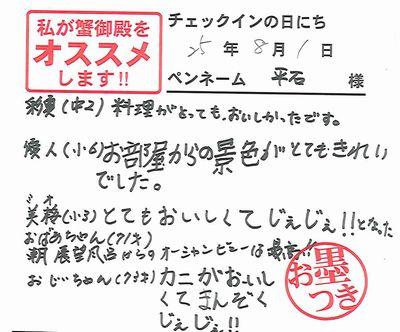 私が蟹御殿を
オススメ
します!!
チェックインの日にち
25年8月1日
ペンネーム 平石 様
(中2) 料理がとってもおいしかったです。
優人(小6) お部屋からの景色がとてもきれい
でした。
シオ
美梅(小3) とてもおいしくてじぇじぇ!!となった
おばあちゃん(71才)
朝 展望風呂からオーシャンビューは最高!!
おじいちゃん(73才) カニがおいし
くてまんぞく
じぇじぇ!!
お墨つき